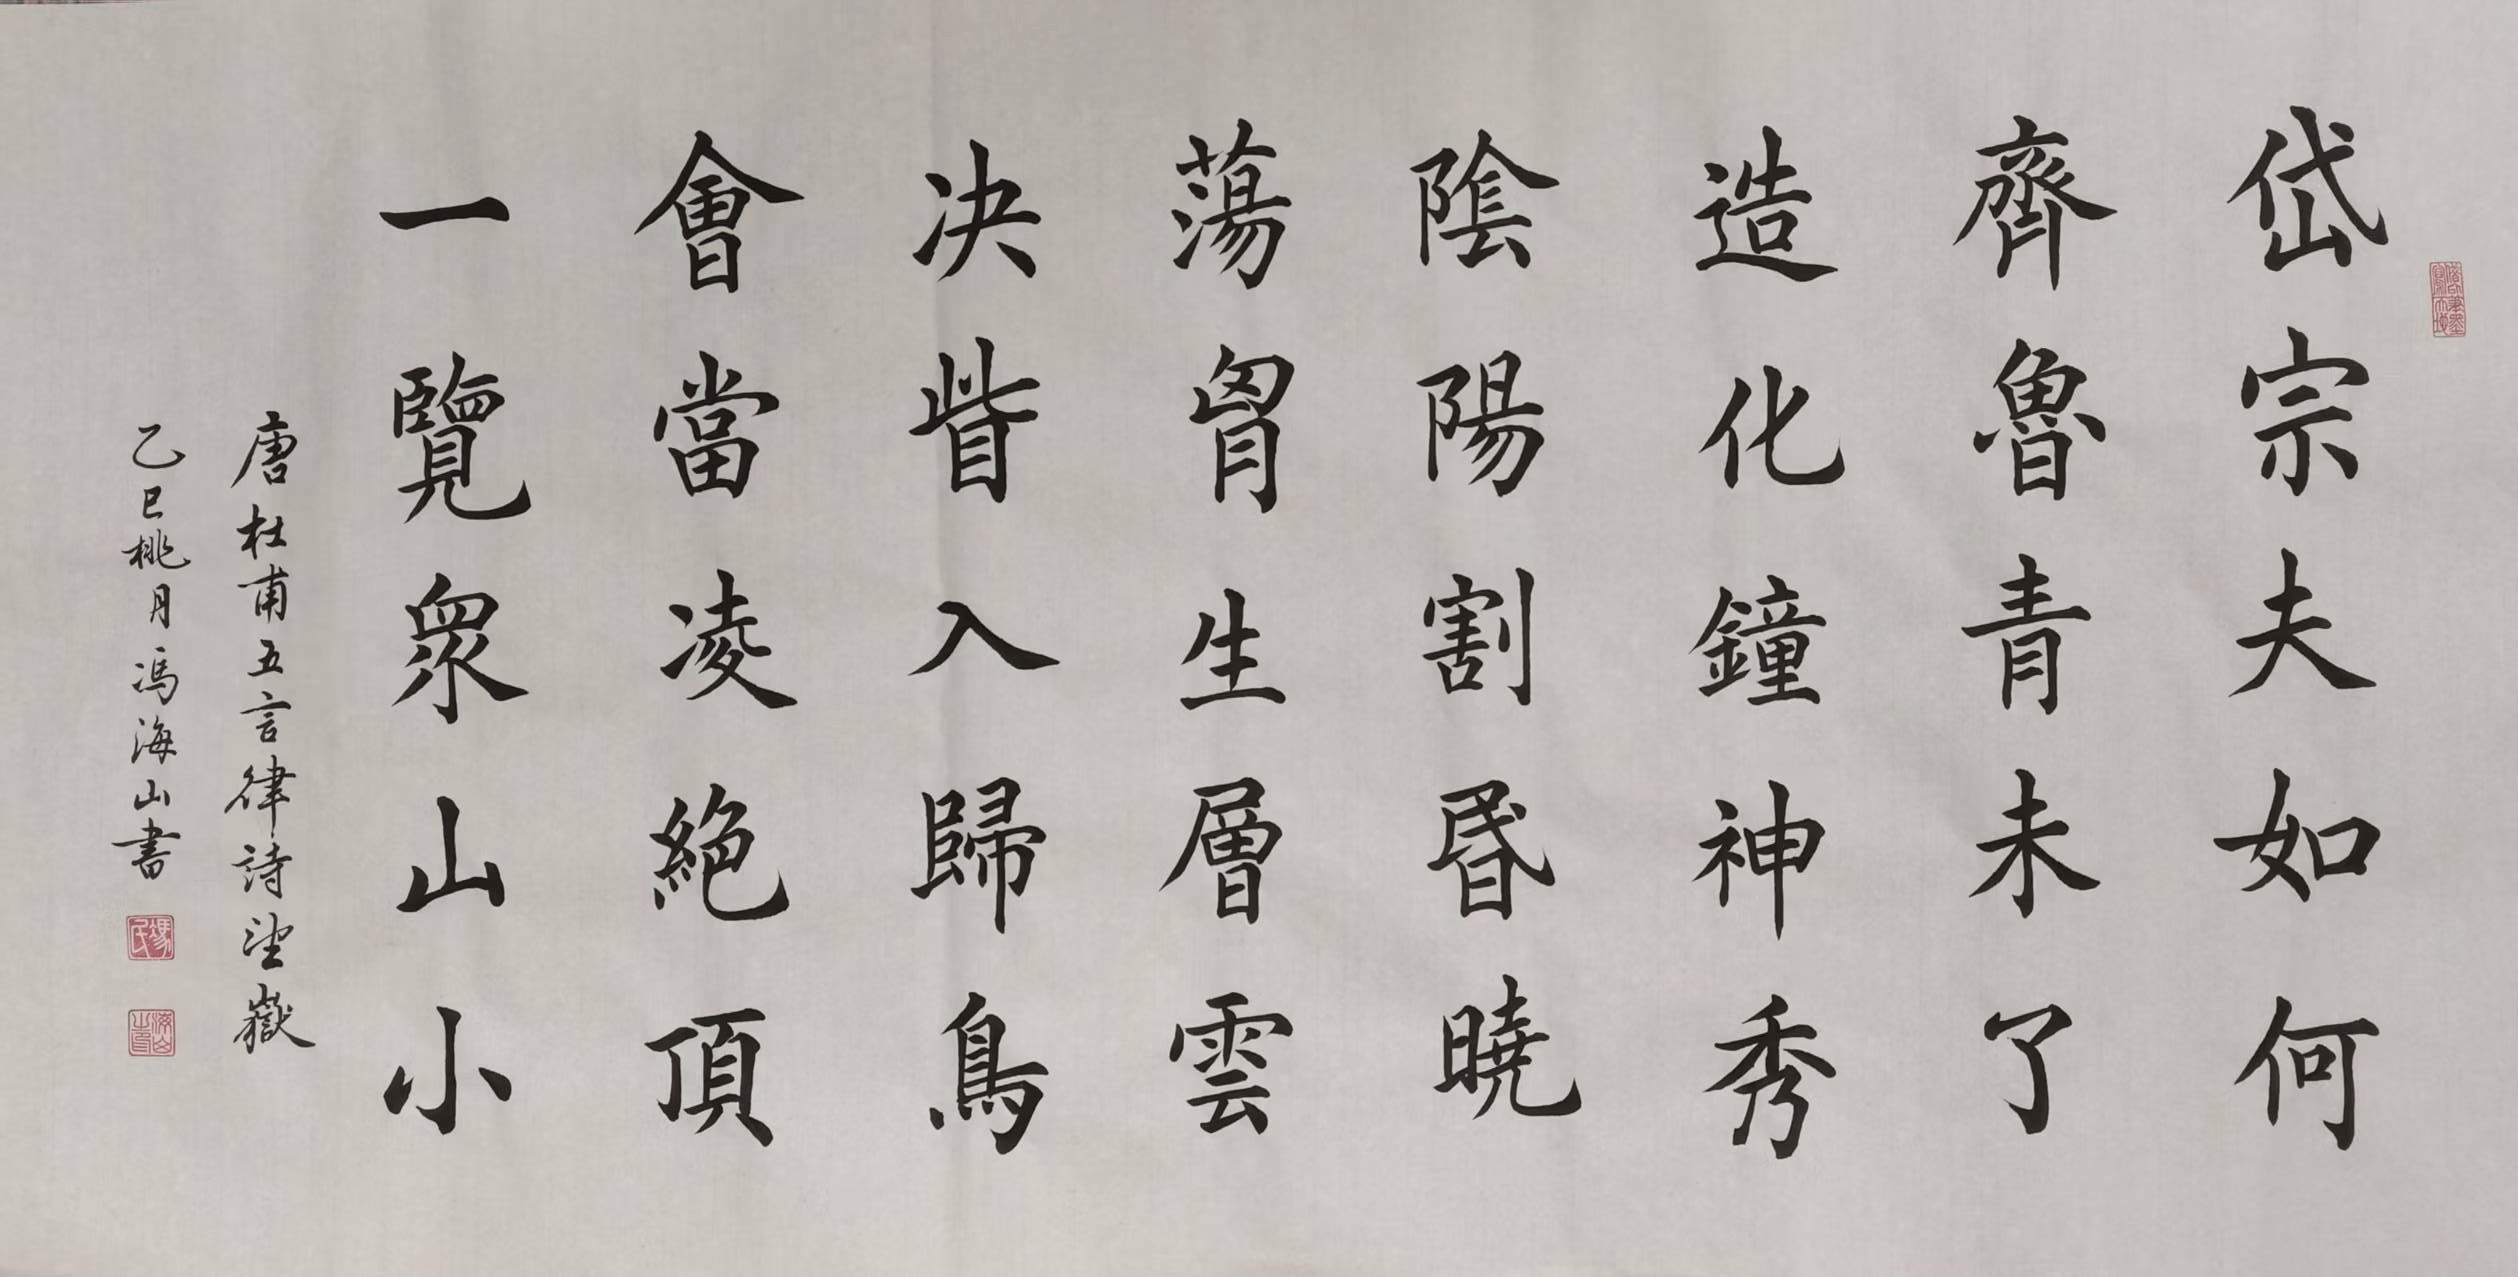 岱宗夫如何
齊魯青未了
造化鐘神秀
陰陽割昏曉
蕩胷生層雲
决眥入歸鳥
會當凌絕頂
一覽眾山小
唐杜甫五言律詩望嶽
乙巳桃月冯海山書